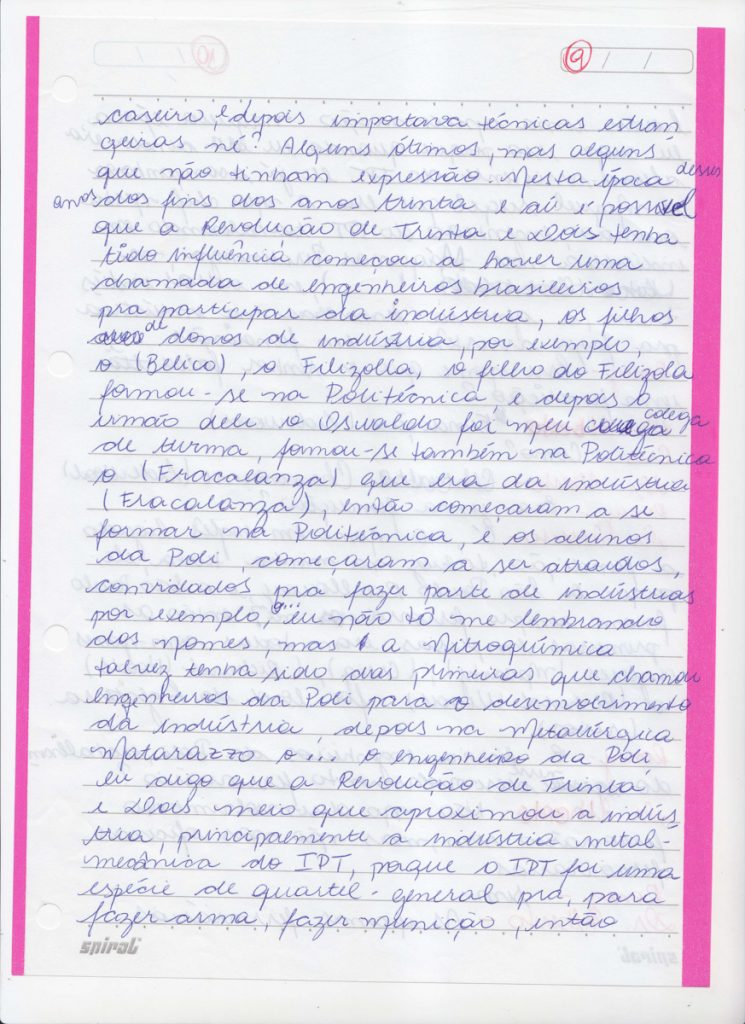 9 / /
caseiro, e depois importava técnicas estran
geiras né? Alguns ótimos, mas alguns
que não tinham expressão. Nesta época desses
anos dos fins dos anos trinta e aí é possível
que a Revolução de Trinta e Dois tenha
tido influência começou a haver uma
chamada de engenheiros brasileiros
pra participar da indústria, os filhos
de donos de indústria, por exemplo,
o (Belico), o Filizolla, o filho do Filizola
formou-se na Politécnica e depois o
irmão dele o Osvaldo foi meu colega
de turma, formou-se também na Politécnica
o (Fracalanza) que era da indústria
(Fracalanza), então começaram a se
formar na Politécnica, e os alunos
da Poli, começaram a ser atraídos,
convidados pra fazer parte de indústrias
por exemplo, o... eu não tô me lembrando
dos nomes, mas a Nitroquímica
talvez tenha sido das primeiras que chamou
engenheiros da Poli para o desenvolvimento
da indústria, depois na Metalúrgua
Matarazzo o... o engenheiro da Poli
eu digo que a Revolução de Trinta
e Dois meio que aproximou a indús
tria, principalmente a indústria metal-
mecânica do IPT, porque o IPT foi uma
espécie de quartel-general pra, para
fazer arma, fazer munição, então
spiral